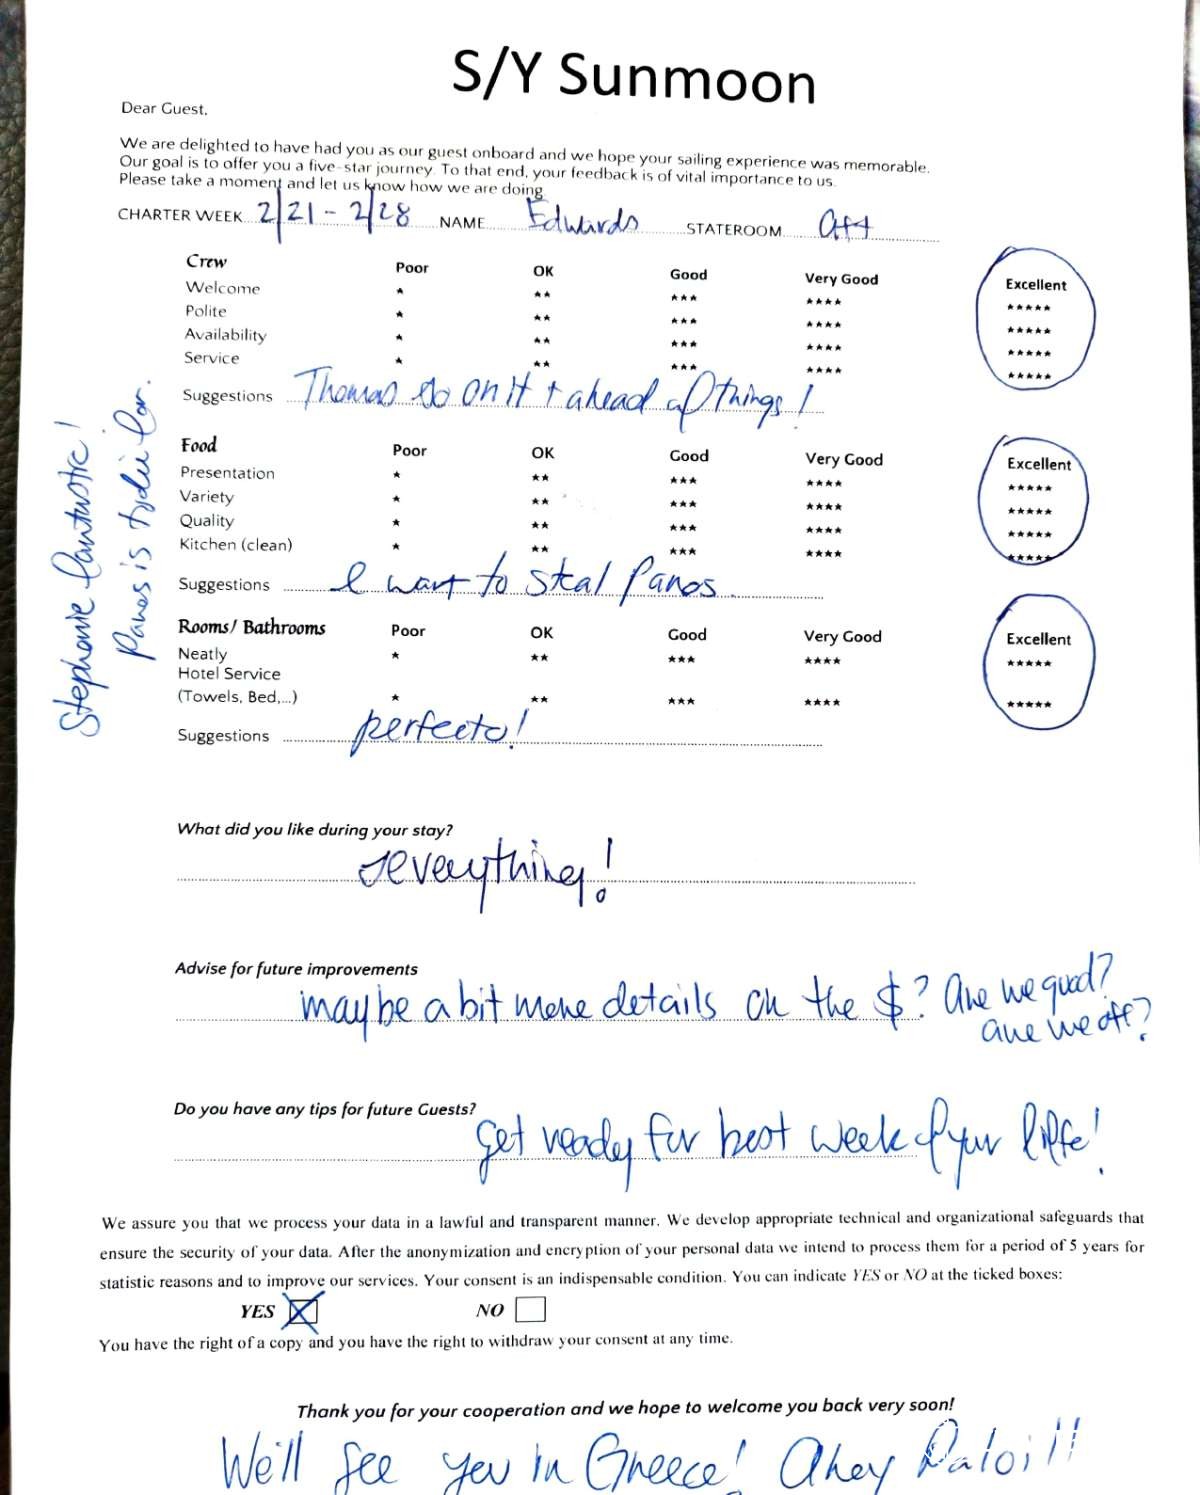 S/Y Sunmoon
Dear Guest,
We are delighted to have had you as our guest onboard and we hope your sailing experience was memorable.
Our goal is to offer you a five-star journey. To that end, your feedback is of vital importance to us.
Please take a moment and let us know how we are doing
CHARTER WEEK 2/21 - 2/28 NAME Edwards STATEROOM Aft
Crew Poor OK Good Very Good Excellent
Welcome * ** *** **** *****
Polite * ** *** **** *****
Availability * ** *** **** *****
Service * ** *** **** *****
Suggestions Thomas so on it + ahead of things!
Stephanie fantastic!
Panos is
Food Poor OK Good Very Good Excellent
Presentation * ** *** **** *****
Variety * ** *** **** *****
Quality * ** *** **** *****
Kitchen (clean) * ** *** **** *****
Suggestions I want to steal Panos.
Rooms/ Bathrooms Poor OK Good Very Good Excellent
Neatly * ** *** **** *****
Hotel Service
(Towels, Bed,...) * ** *** **** *****
Suggestions perfecto!
What did you like during your stay?
everything!
Advise for future improvements
maybe a bit more details on the $? Are we good?
are we off?
Do you have any tips for future Guests?
Get ready for best week of your life!
We assure you that we process your data in a lawful and transparent manner. We develop appropriate technical and organizational safeguards that
ensure the security of your data. After the anonymization and encryption of your personal data we intend to process them for a period of 5 years for
statistic reasons and to improve our services. Your consent is an indispensable condition. You can indicate YES or NO at the ticked boxes:
YES NO
You have the right of a copy and you have the right to withdraw your consent at any time.
Thank you for your cooperation and we hope to welcome you back very soon!
We'll see you in Greece! Ahoy